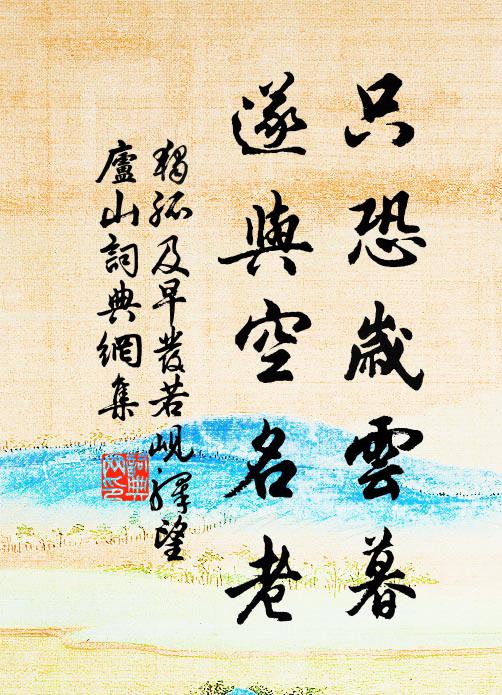 只恐歲雲暮
遂與空名老
獨孤及早發若峴驛望
廬山詞典網集